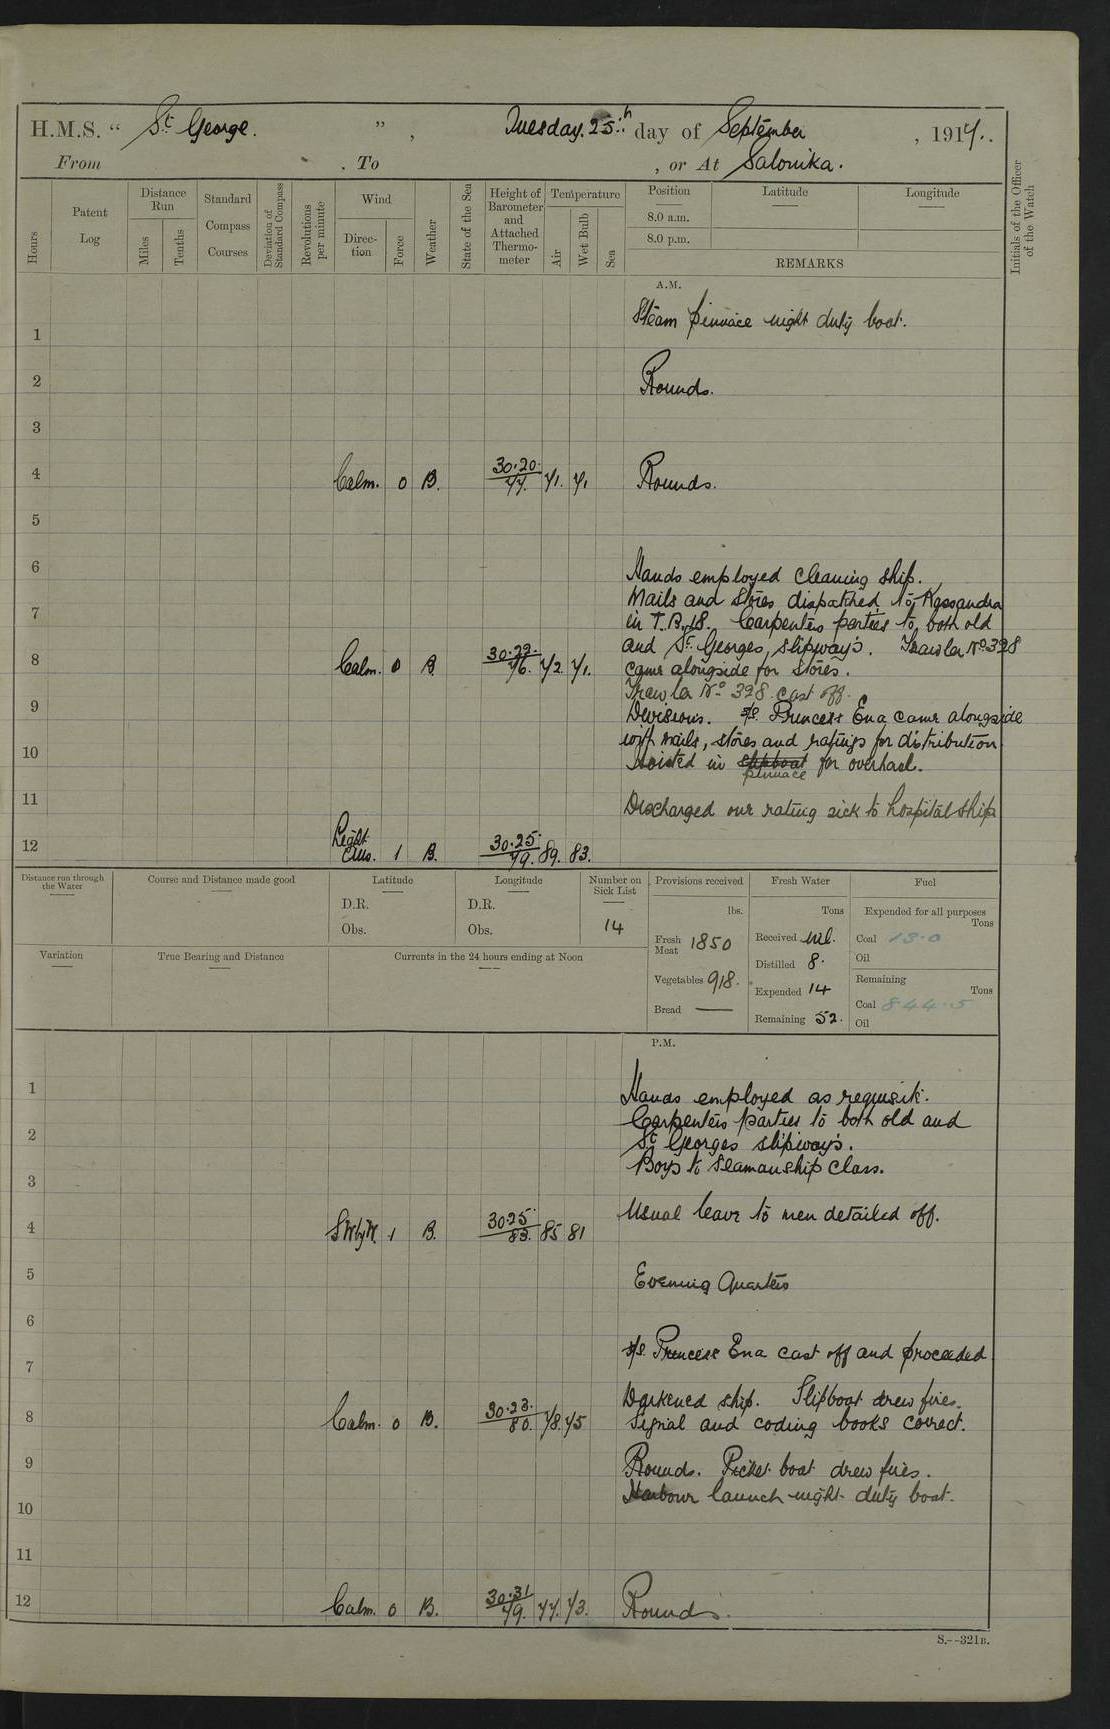 H.M.S. “ St George. ” , Tuesday. 25th day of September , 1917.
From . To , or At Salonika.
Hours
Patent Log
Distance Run
Miles
Tenths
Standard Compass Courses
Deviation of Standard Compass
Revolutions per minute
Wind
Direction
Force
Weather
State of the Sea
Height of Barometer and Attached Thermometer
Temperature
Air
Wet Bulb
Sea
Position
8.0 a.m.
8.0 p.m.
Latitude
Longitude
REMARKS
Initials of the Officer of the Watch
A.M.
Steam pinnace night duty boat.
1
2 Rounds.
3
4 Calm. 0 B. 30.20. 77. 71. 71 Rounds.
5
6 Hands employed cleaning ship.
Mails and Stores dispatched to Kassandra
7 in T.B. 18. Carpenters parties to both old
and St. Georges, slipway's. Trawler No 328
8 Calm. 0 B. 30.22. 76. 72. 71. came alongside for stores.
Trawler No 328 cast off.
9 Divisions. s/s. Princess Ena came alongside
with mails, stores and ratings for distribution
10 Hoisted in slipboat pinnace for overhaul.
11 Discharged one rating sick to hospital ship
12 Light airs. 1 B. 30.25. 79. 89. 83.
Distance run through the Water
Course and Distance made good
Latitude
D.R.
Obs.
Longitude
D.R.
Obs.
Number on Sick List
14
Provisions received
lbs.
Fresh Meat 1850
Vegetables 918.
Bread —
Fresh Water
Tons
Received nil.
Distilled 8.
Expended 14
Remaining 52.
Fuel
Expended for all purposes
Tons
Coal 13.0
Oil
Remaining
Tons
Coal 844.5
Oil
Variation
True Bearing and Distance
Currents in the 24 hours ending at Noon
P.M.
1 Hands employed as requisite.
Carpenters parties to both old and
2 St Georges slipway's.
Boys to Seamanship class.
3
Usual leave to men detailed off.
4 SWbyW. 1 B. 30.25. 83. 85 81
5 Evening Quarters
6
s/s. Princess Ena cast off and proceeded
7
Darkened ship. Slipboat drew fires.
8 Calm. 0 B. 30.23. 80. 78. 75 Signal and coding books correct.
9 Rounds. Picket boat drew fires.
Harbour launch night duty boat.
10
11
12 Calm. 0 B. 30.31 79. 77. 73. Rounds.
S.--321B.